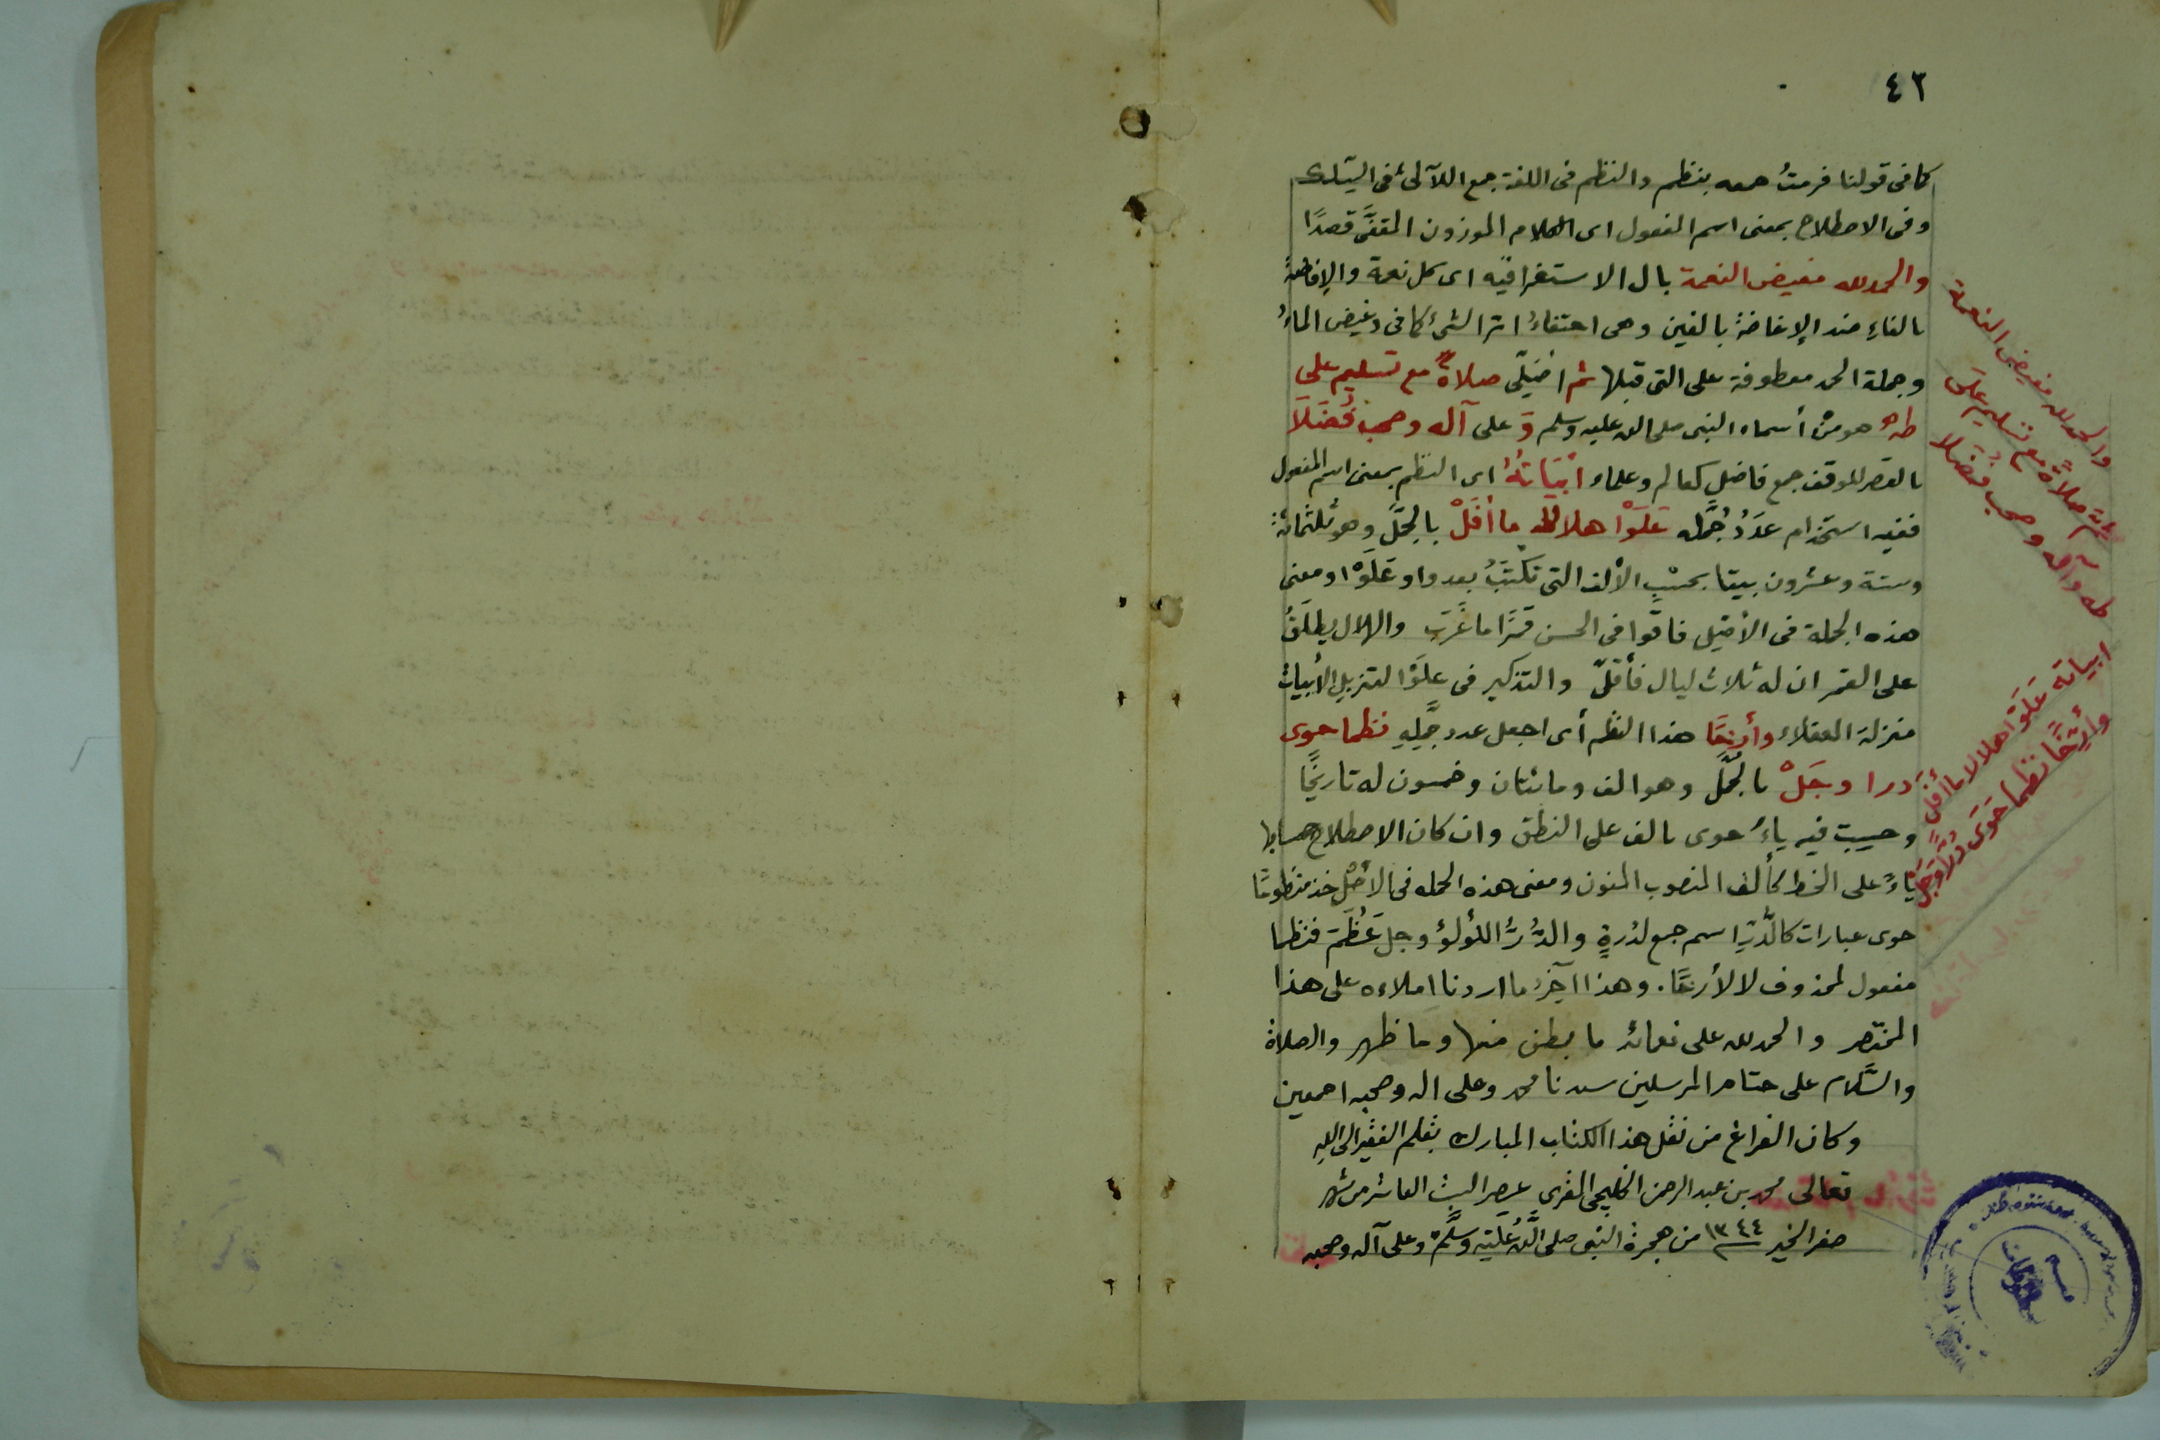 ٤٢
كما فى قولنا فرمتُ جمعه بنظم والنظم فى اللغة جمع اللآلئ فى السِّلك
وفى الاصطلاح بمعنى اسم المفعول اى الكلام الموزون المقفَّى قصدًا
والحمد لله مفيض النعمة بال الاستغراقيّه اى كل نعمة والإفاضة
بالفاءِ ضد الإغاضة بالغين وهى اختفاءُ اثر الشئ كما فى وغيض الماءُ
وجملة الحمد معطوفة على التى قبلها ثم اُصَلّى صلاةً مع تسليم على
طه هو من أسماء النبى صلى الله عليه وسلم وَ على آله وصحب فُضَلَا
بالقصر للوقف جمع فاضل كعالم وعلماء ابْيَاتهُ اى النظم بمعنى اسم المفعول
ففيه استخدام عدَدُ جُمَّله عَلَوْا هلالا ما أفَلْ بالجُمَّل وهو ثلثمائة
وستة وعشرون بيتا بحسْب الألف التى تُكتَبُ بعد واو عَلَوْا ومعنى
هذه الجملة فى الأصل فاقوا فى الحسن قمرًا ما غَرَبَ والهلال يطلَقُ
على القمر ان له ثلاث ليال فأقلّ والتذكير فى علَوْا لتنزيل الأبيات
منزلة العقلاء وأرِّخَا هذا النظم أى اجعل عدد جُمَّلِهِ نظما حوى
دررا وجَلْ بالجُمَّل وهو الف ومائتان وخمسون له تاريخًا
وحسبت فيه ياءُ حوى بالف على النطق وان كان الاصطلاح حسابها
ياءً على الخط كألف المنصوب المنون ومعنى هذه الجمله فى الأصْل خذ منظومًا
حوى عبارات كالدُّررِ اسم جمع لدُرةٍ والدُّرُّ اللؤلؤ وجل عَظُمَ فنظما
مفعول لمحذوف لا لأرخَا. وهذا آخِرُ ما اردنا املاءه على هذا
المختصر والحمد لله على نعمائه ما بطن منها وما ظهر والصلاة
والسَّلام على ختام المرسلين سيدنا محمد وعلى اله وصحبه اجمعين
وكان الفراغ من نقل هذا الكتاب المبارك بقلم الفقير الى الله
تعالى محمد بن عبد الرحمن الخليجى المقرى عصر السبت العاشر من شهر
صفر الخير ١٣٤٤ من هجرة النبى صلى الله عليه وسلَّم وعلى آله وصحبه
والحمد لله مفيض النعمة
ثم صلاةً مع تسليم على
طه وآله وصحب فُضَلَا
ابياته عَلَوْا هلالا ما أفَلْ
وأرِّخَا نظما حَوَى دُررًا وَجَلْ